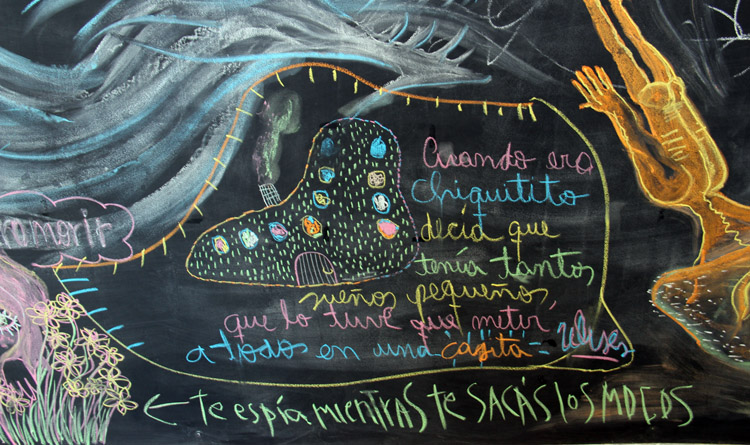 Cuando era
chiquitito
decía que
tenía tantos
sueños pequeños,
que lo tuve que meter
a todos en una casita = Ulises
morir
← te espía mientras te SACÁS los MOCOS